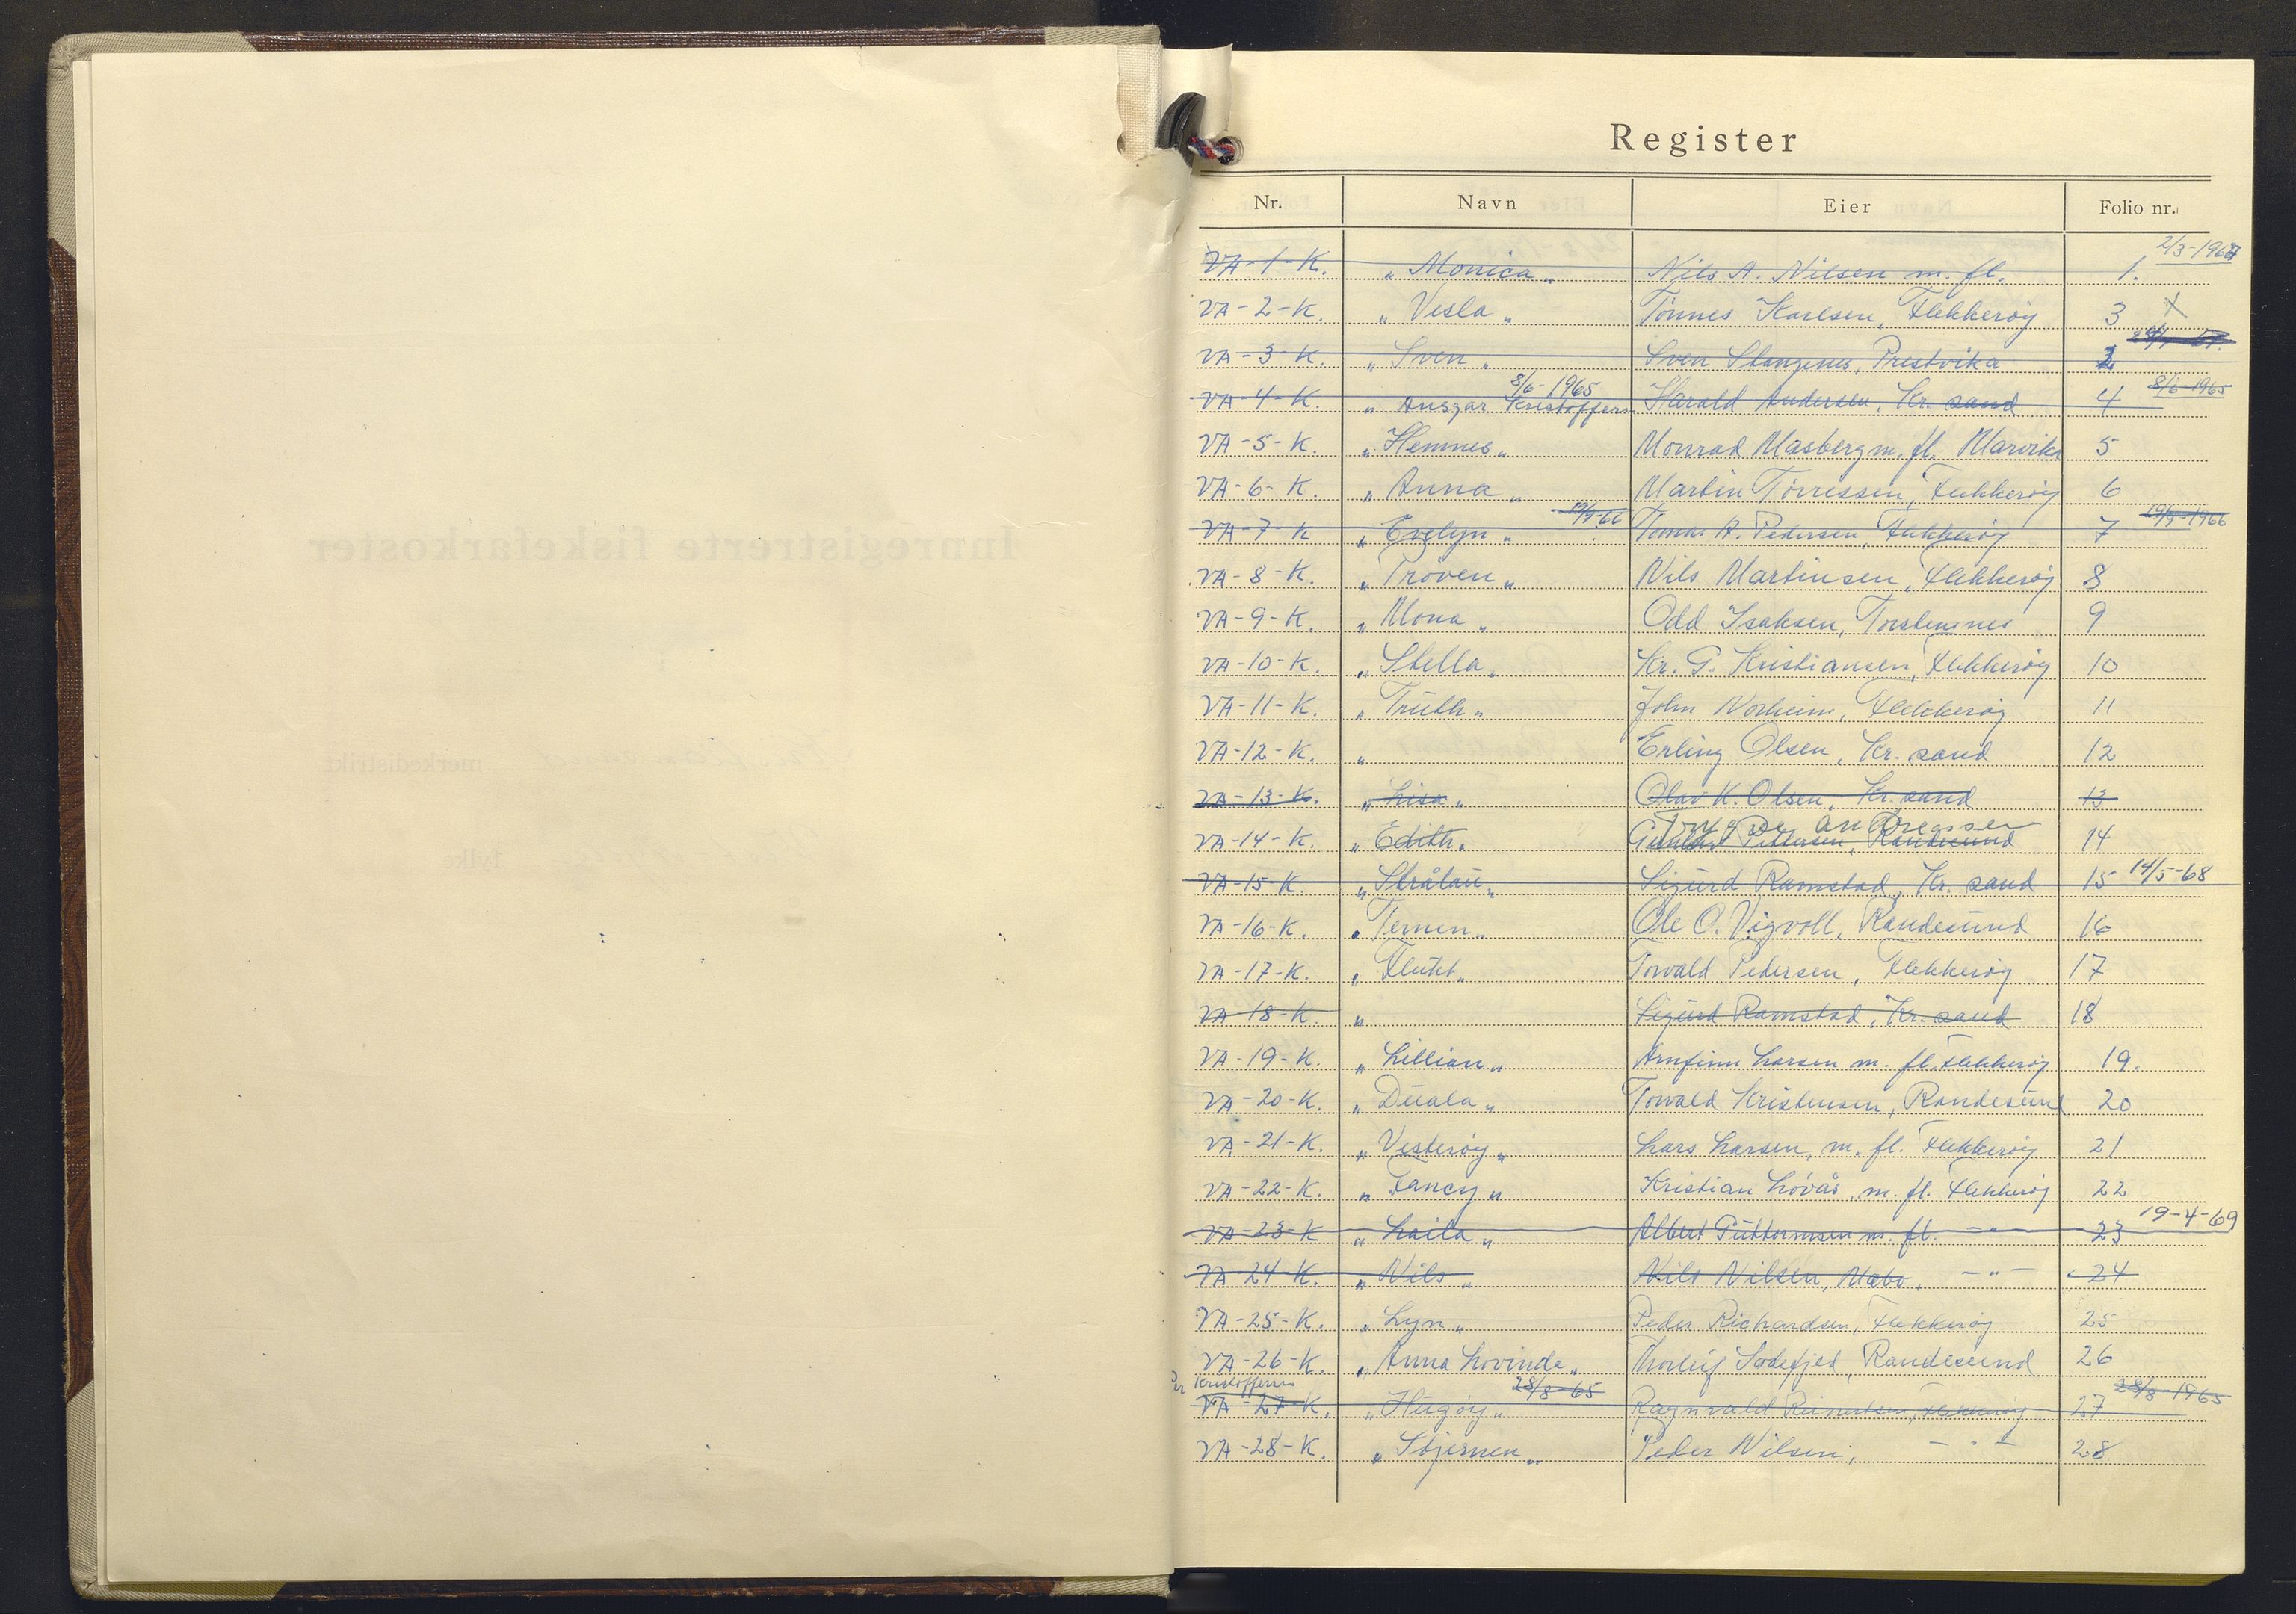 Register
Nr. Navn Eier Folio nr.
2/3-1967
VA-1-K. „Monica„ Nils A. Nilsen m. fl. 1.
VA-2-K. „Vesla„ Tønnes Karlsen, Flekkerøy 3 X
VA-3-K. „Sven„ Sven Stangenes, Prestvika 2
8/6-1965 8/6-1965
VA-4-K. „Ansgar Kristoffersen Harald Andersen, Kr. sand 4
VA-5-K. „Hemnes„ Monrad Masberg m. fl. Marvika 5
VA-6-K. „Anna„ Martin Torressen, Flekkerøy 6
19/9-66 19/9-1966
VA-7-K „Evelyn„ Tomas A. Pedersen, Flekkerøy 7
VA-8-K. „Trøven„ Nils Martinsen, Flekkerøy 8
VA-9-K. „Mona„ Odd Isaksen, Torstennes 9
VA-10-K. „Stella„ Kr. G. Kristiansen, Flekkerøy 10
VA-11-K. „Truth„ John Norheim, Flekkerøy 11
VA-12-K. „ Erling Olsen, Kr. sand 12
VA-13-K. „Lisa„ Olav K. Olsen, Kr. sand 13
Trygve Andreassen
VA-14-K. „Edith„ Pettersen, Randesund 14
VA-15-K „Strålau„ Sigurd Ramstad, Kr. sand 15 14/5-68
VA-16-K. „Ternen„ Ole O. Vigvoll, Randesund 16
VA-17-K. „Flukt„ Torvald Pedersen, Flekkerøy 17
VA-18-K. „ Sigurd Ramstad, Kr. sand 18
VA-19-K. „Lillian„ Arnfinn Larsen m. fl. Flekkerøy 19.
VA-20-K. „Duala„ Torvald Kristensen, Randesund 20
VA-21-K. „Vesterøy„ Lars Larsen, m. fl. Flekkerøy 21
VA-22-K. „Fancy„ Kristian Løvås, m. fl. Flekkerøy 22
19-4-69
VA-23-K „Laila„ Albert Guttormsen m. fl. -"- 23
VA-24-K. „Nils„ Nils Nilsen, Mæbø, -"- 24
VA-25-K. „Lyn„ Peder Richardsen, Flekkerøy 25
VA-26-K. „Anna Lovinda„ Thorleif Sodefjed, Randesund 26
Per Kristoffersen 28/8-65 28/8-1965
VA-27-K. „Hugøy„ Ragnvald Reinertsen, Flekkerøy 27
VA-28-K. „Stjernen„ Peder Nilsen, -"- 28